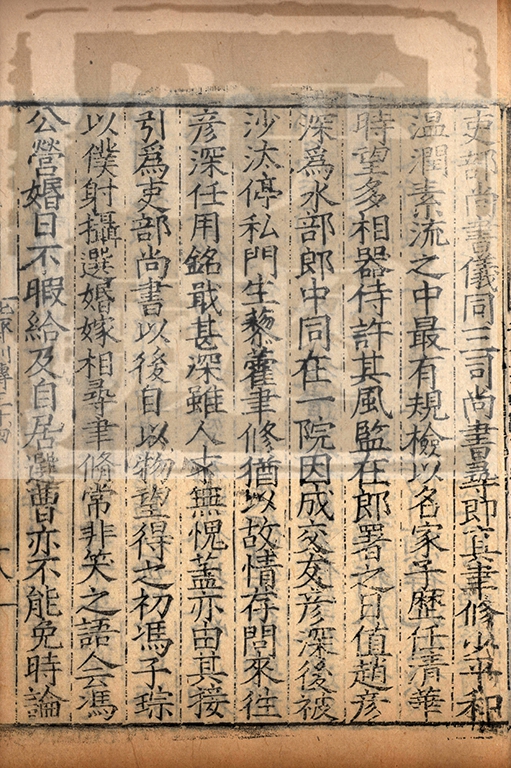 吏部尚書儀同三司尚書尋即真聿修少平和
温潤素流之中最有規檢以名家子歷任清華
時望多相器待許其風監在郎署之日值趙彦
深為水部郎中同在一院因成交友彦深後被
沙汰停私門生藜藿聿修猶以故情存問來往
彦深任用銘戢甚深雖人才無愧蓋亦由其接
引為吏部尚書以後自以物望得之初馮子琮
以僕射攝選婚嫁相尋聿脩常非笑之語云馮
公營婚日不暇給及自居選曹亦不能免時論